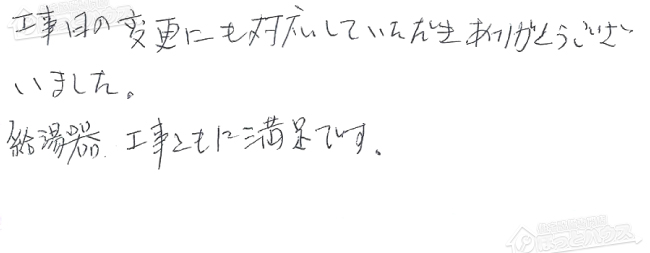 工事日の変更にも対応していただきありがとうござ
いました。
給湯器、工事ともに満足です。